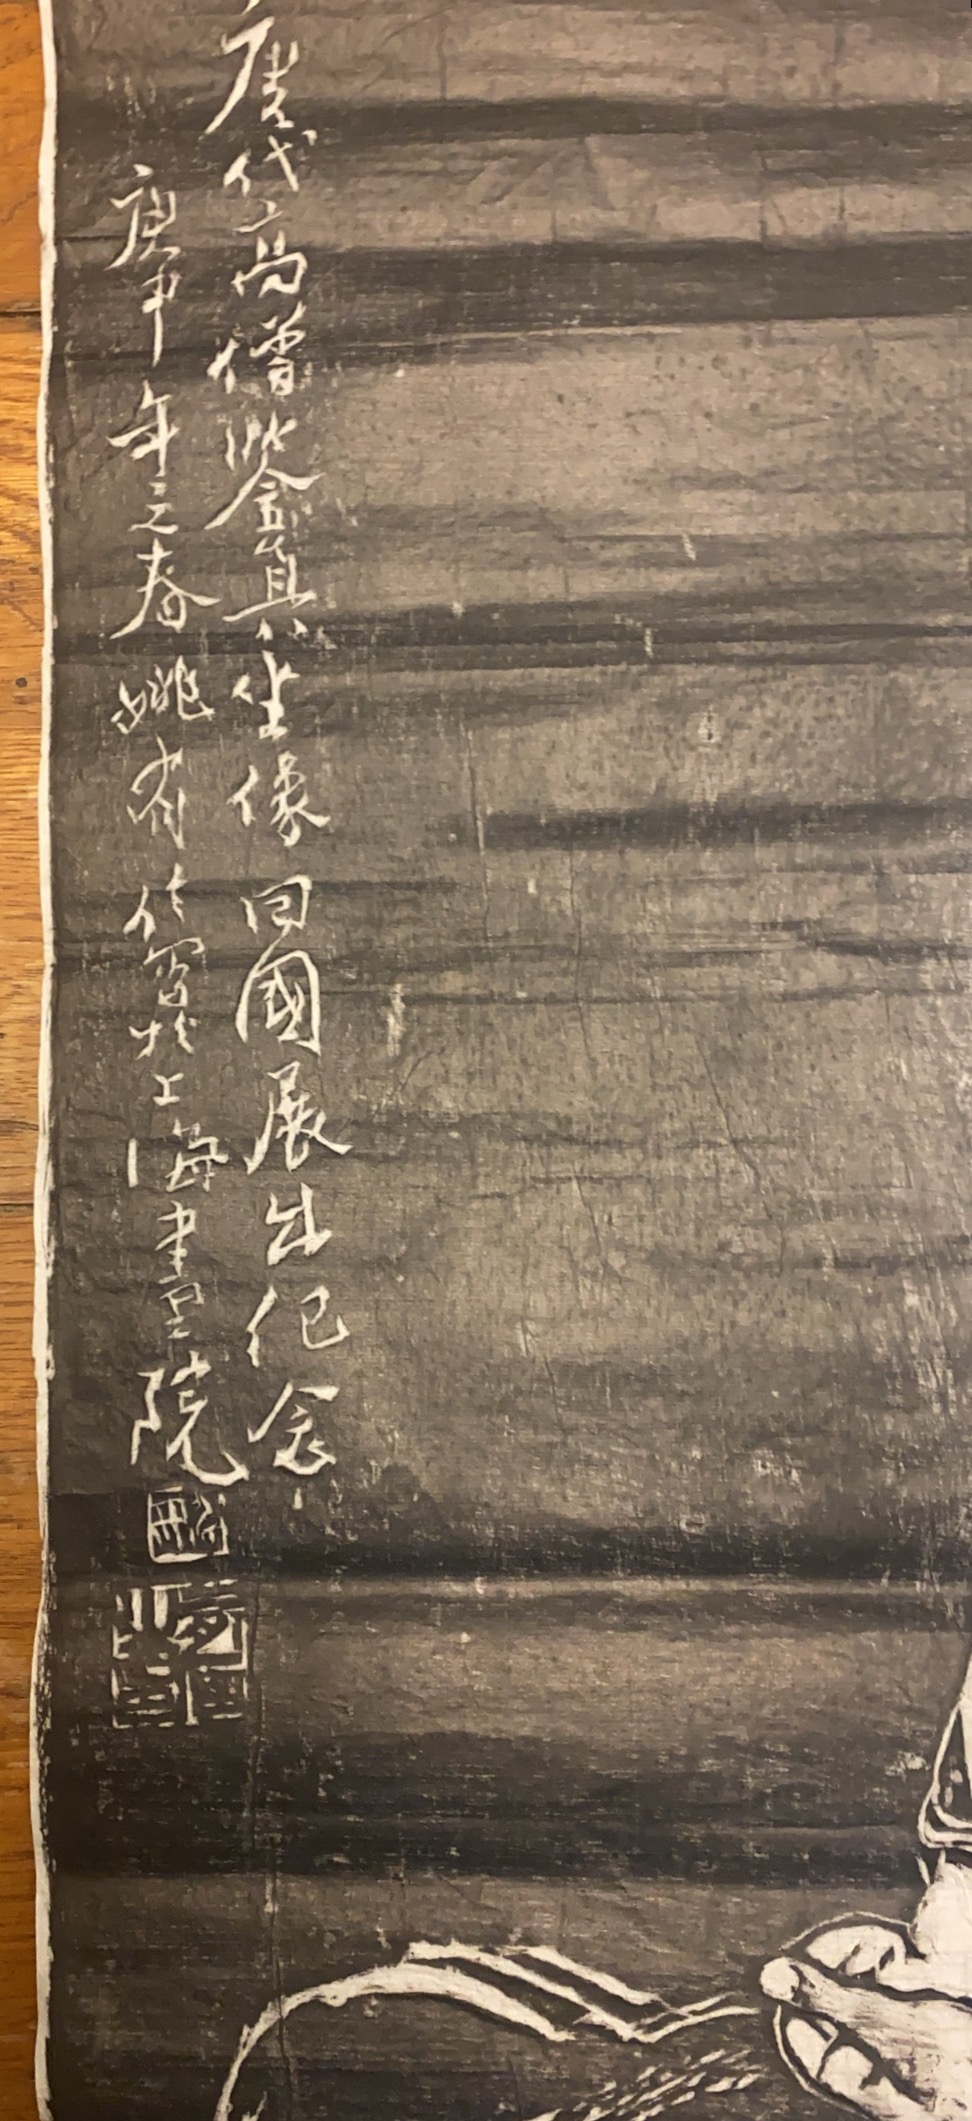 唐代高僧鉴真坐像回國展出纪念
庚申年之春姚有信寫於上海画院